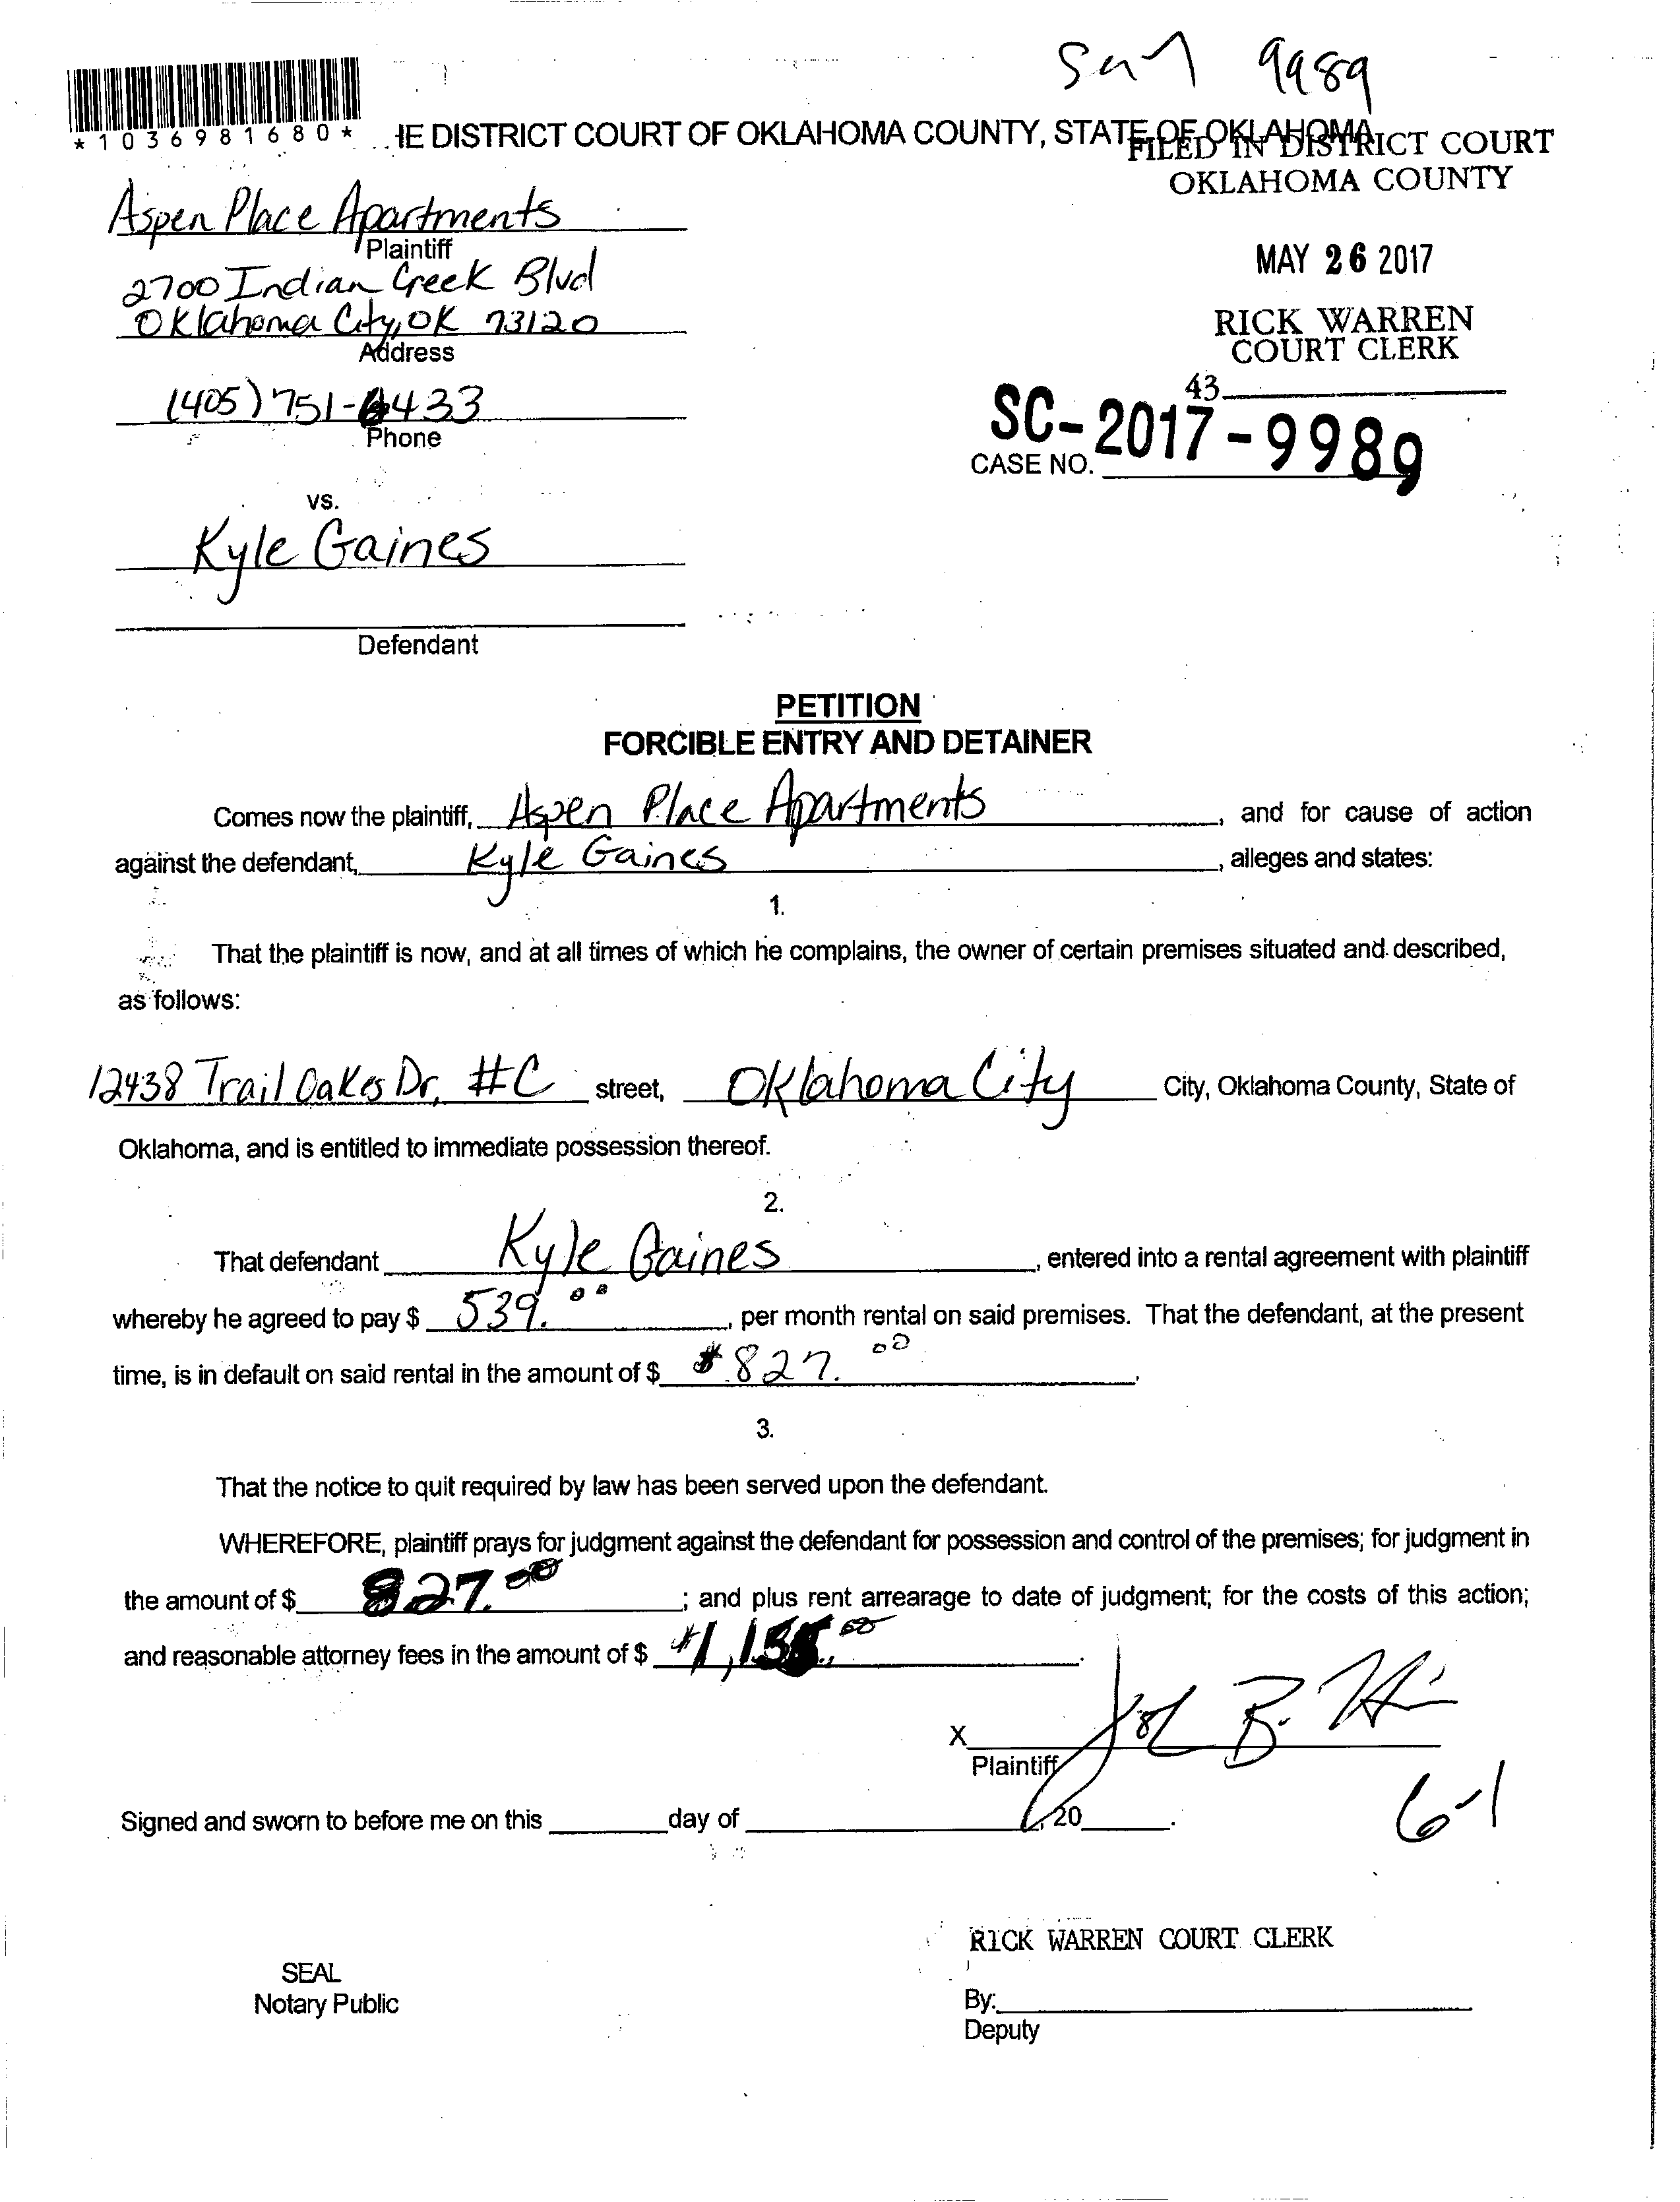 9989
*1036981680* HE DISTRICT COURT OF OKLAHOMA COUNTY, STATE OF OKLAHOMA
FILED IN DISTRICT COURT
OKLAHOMA COUNTY
Aspen Place Apartments
Plaintiff
MAY 26 2017
2700 Indian Creek Blvd
Oklahoma City, OK 73120
Address
RICK WARREN
COURT CLERK
43
(405) 751-6433
Phone
SC-2017-9989
CASE NO.
vs.
Kyle Gaines
Defendant
PETITION
FORCIBLE ENTRY AND DETAINER
Comes now the plaintiff, Aspen Place Apartments, and for cause of action
against the defendant, Kyle Gaines, alleges and states:
1.
That the plaintiff is now, and at all times of which he complains, the owner of certain premises situated and described,
as follows:
12438 Trail Oakes Dr, #C street, Oklahoma City City, Oklahoma County, State of
Oklahoma, and is entitled to immediate possession thereof.
2.
That defendant Kyle Gaines, entered into a rental agreement with plaintiff
whereby he agreed to pay $ 539.00, per month rental on said premises. That the defendant, at the present
time, is in default on said rental in the amount of $ $827.00.
3.
That the notice to quit required by law has been served upon the defendant.
WHEREFORE, plaintiff prays for judgment against the defendant for possession and control of the premises; for judgment in
the amount of $ 827.00; and plus rent arrearage to date of judgment; for the costs of this action;
and reasonable attorney fees in the amount of $
X
Plaintiff
6-1
Signed and sworn to before me on this day of , 20 .
RICK WARREN COURT CLERK
SEAL
Notary Public
By:
Deputy